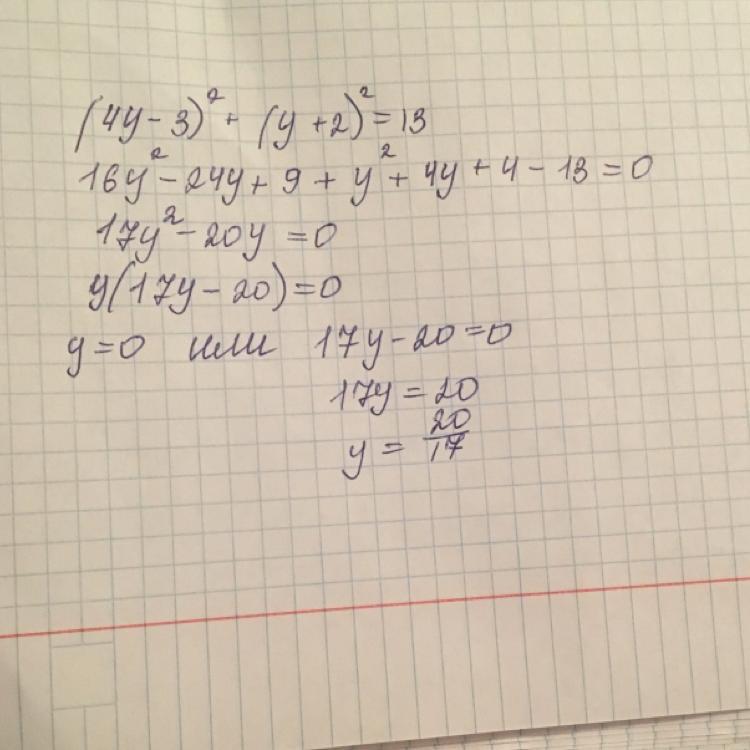 (4y - 3)² + (y + 2)² = 13
16y² - 24y + 9 + y² + 4y + 4 - 13 = 0
17y² - 20y = 0
y(17y - 20) = 0
y = 0 или 17y - 20 = 0
17y = 20
y = 20/17